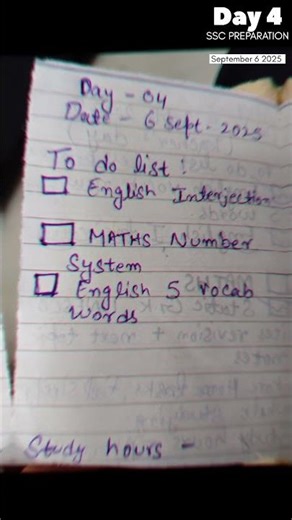 Day 4
SSC PREPARATION
September 6 2025
Day - 04
Date - 6 Sept - 2025
To do list :
English Interjection
MATHS Number
System
English 5 vocab
words
Study hours -